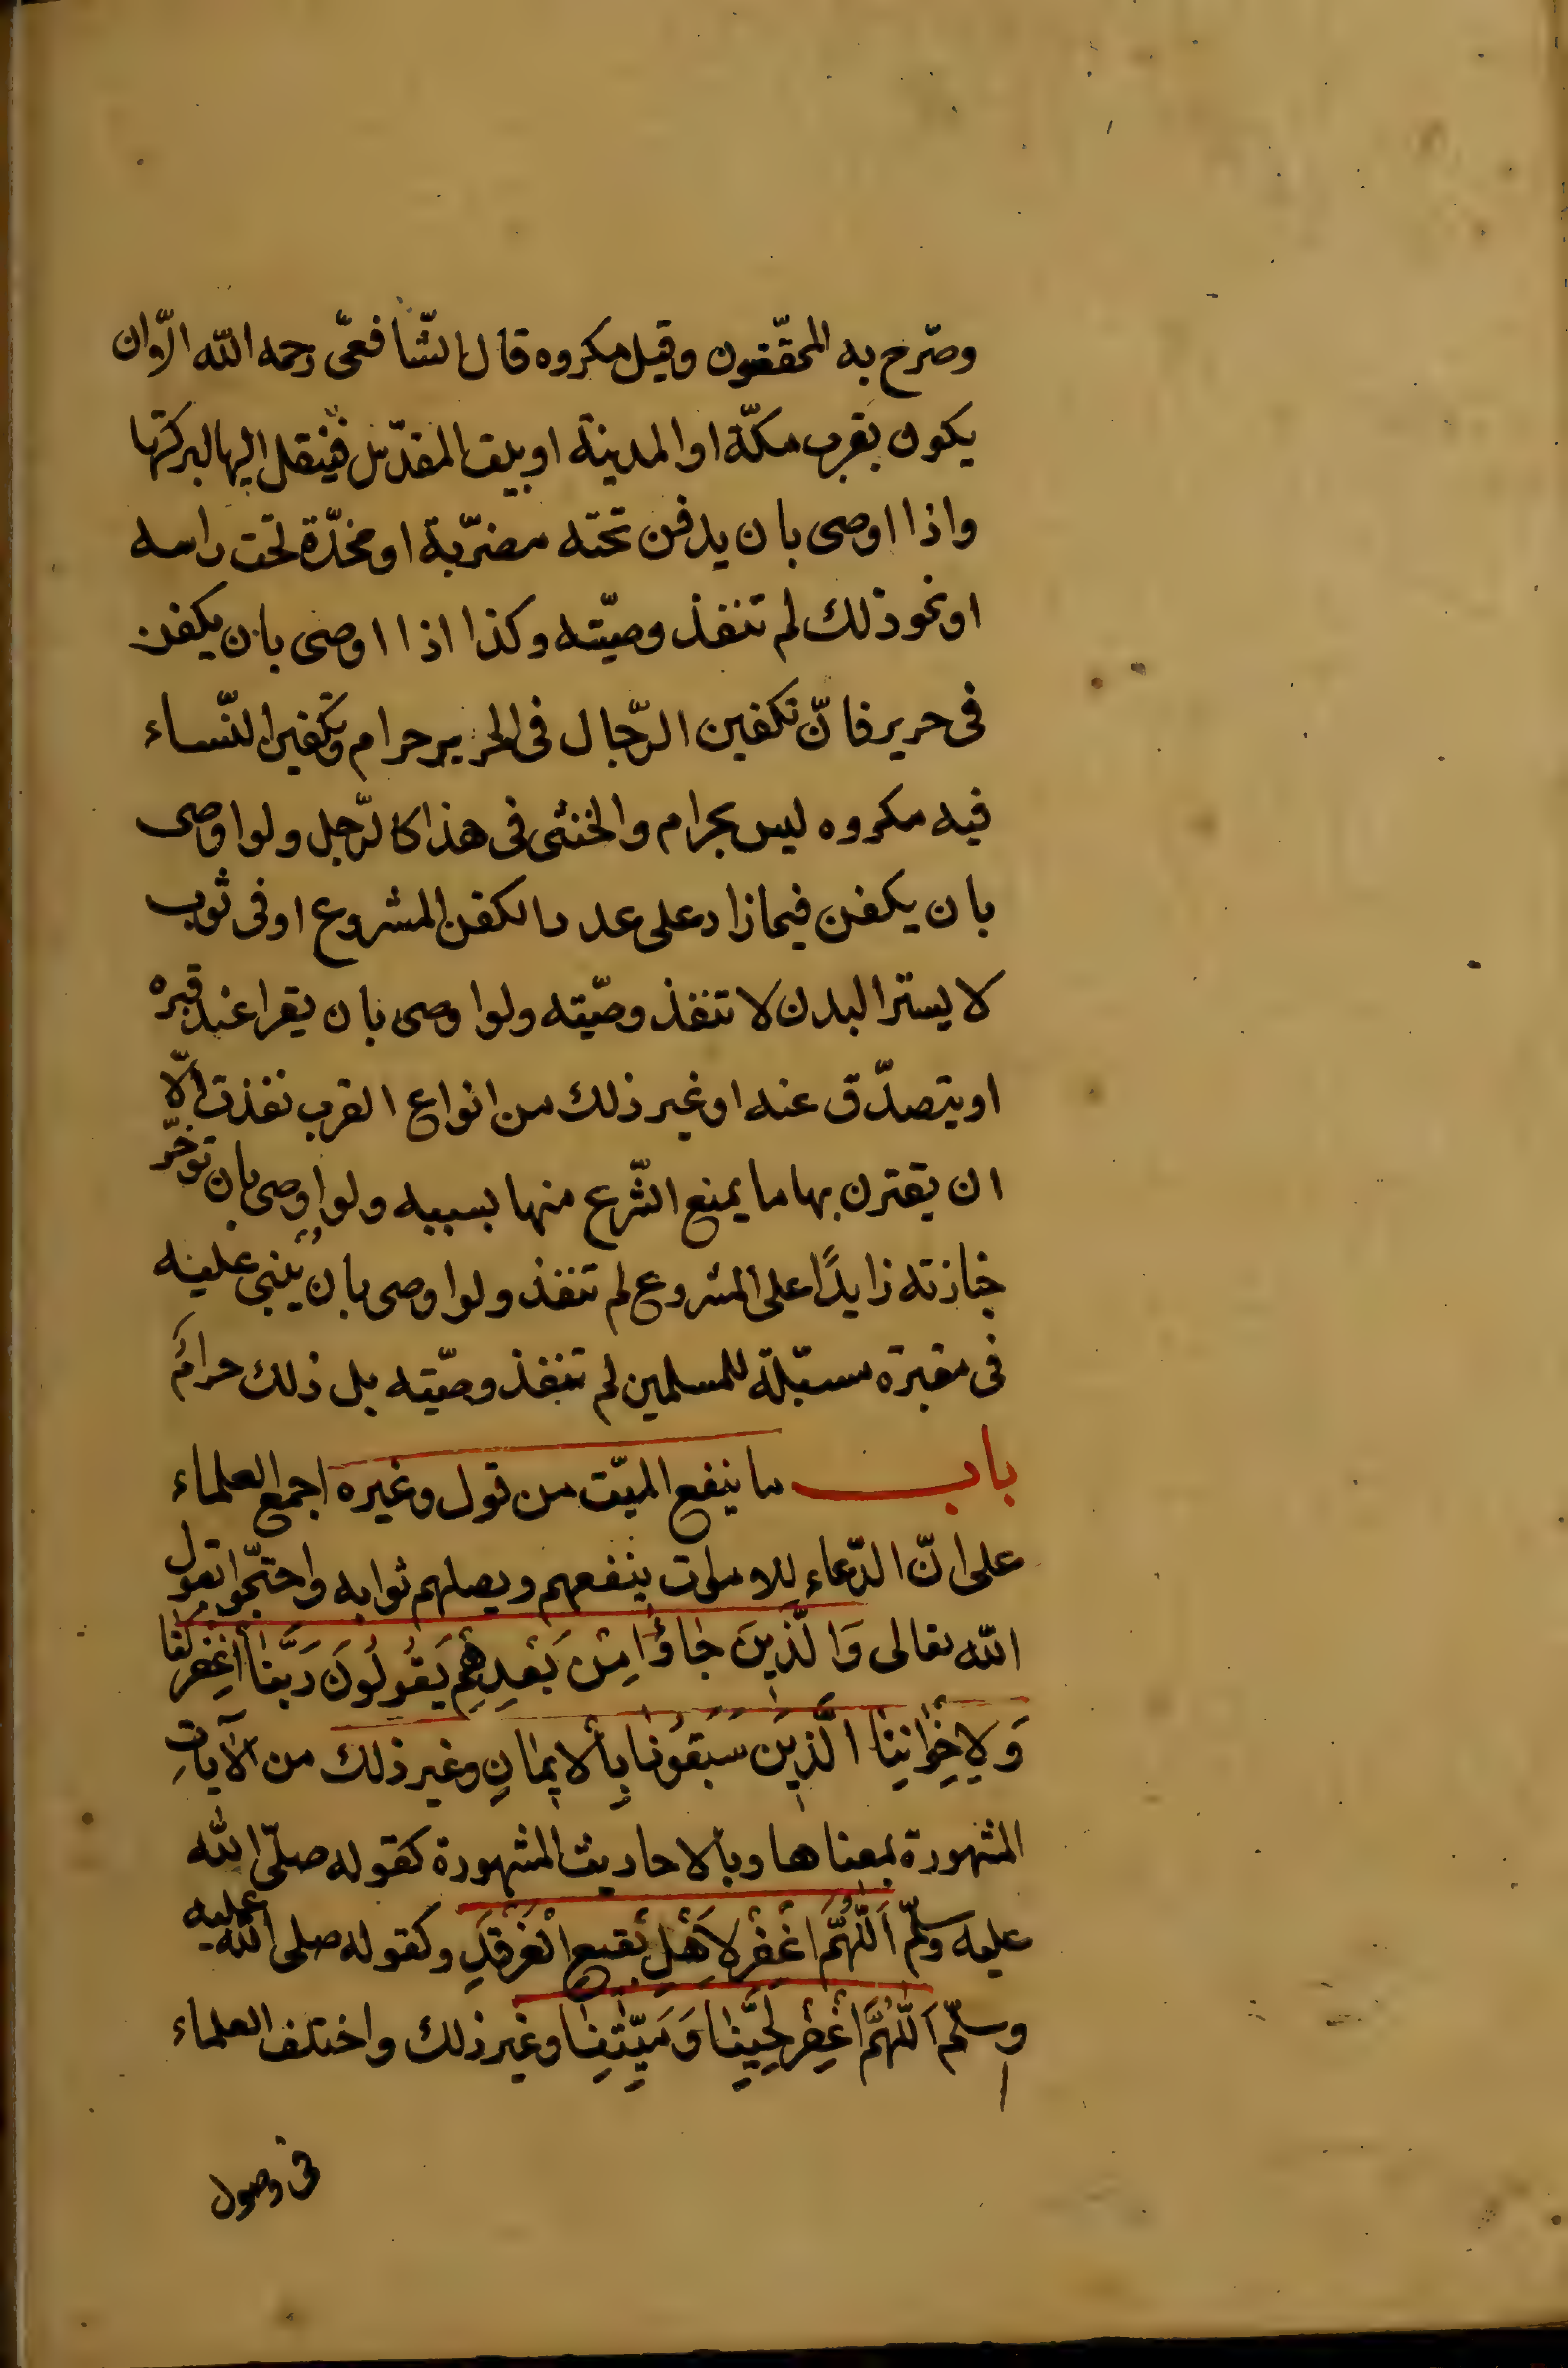 وصّرح به المحقّقون وقيل مكروه قال الشّافعىّ رحمه الله الّا ان
يكون بقرب مكّة او المدينة او بيت المقدّس فينقل اليها لبركتها
واذا اوصى بان يدفن تحته مضرّبة او مخدّة تحت راسه
او نحو ذلك لم تنفذ وصيّته وكذا اذا اوصى بان يكفن
فى حرير فانّ تكفين الرّجال فى الحرير حرام وتكفين النّساء
فيه مكروه ليس بحرام والخنثى فى هذا كالرّجل ولو اوصى
بان يكفن فيما زاد على عدد الكفن المشروع او فى ثوب
لا يستر البدن لا تنفذ وصّيته ولو اوصى بان يقرا عند قبره
او يتصدّق عنه او غير ذلك من انواع القرب نفذت الّا
ان يقترن بها ما يمنع الشّرع منها بسببه ولو اوصى بان توخّر
جنازته زايدًا على المشروع لم تنفذ ولو اوصى بان يبنى عليه
فى مقبرة مسبّلة للمسلمين لم تنفذ وصّيته بل ذلك حرامٌ
باب ما ينفع الميّت من قول وغيره اجمع العلماء
على انّ الدّعاء للاموات ينفعهم ويصلهم ثوابه واحتجّوا بقول
الله تعالى وَالَّذِينَ جَاؤُا مِنْ بَعْدِهِمْ يَقُولُونَ رَبَّنَا اغْفِرْ لَنَا
وَلِإِخْوَانِنَا الَّذِينَ سَبَقُونَا بِالْإِيمَانِ وغير ذلك من الآيات
المشهورة بمعناها وبالاحاديث المشهورة كقوله صلّى الله
عليه وسلّم اَللّٰهُمَّ اغْفِرْ لِاَهْلِ بَقِيعِ الْغَرْقَدِ وكقوله صلى الله عليه
وسلّم اَللّٰهُمَّ اغْفِرْ لِحَيِّنَا وَمَيِّتِنَا وغير ذلك واختلف العلماء
فى وصول